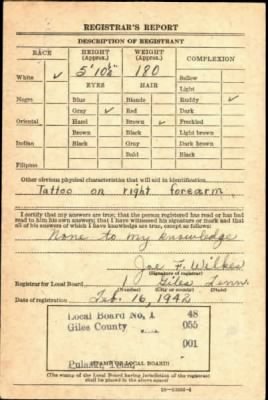 REGISTRAR'S REPORT
DESCRIPTION OF REGISTRANT
RACE HEIGHT (Approx.) WEIGHT (Approx.) COMPLEXION
White ✓ 5' 10½" 180 Sallow
EYES HAIR Light
Negro Blue Blonde Ruddy ✓
Gray ✓ Red Dark
Oriental Hazel Brown ✓ Freckled
Brown Black Light brown
Indian Black Gray Dark brown
Bald Black
Filipino
Other obvious physical characteristics that will aid in identification
Tattoo on right forearm
I certify that my answers are true; that the person registered has read or has had
read to him his own answers; that I have witnessed his signature or mark and that
all of his answers of which I have knowledge are true, except as follows:
None to my knowledge
Joe F. Wilkes
(Signature of registrar)
Registrar for Local Board 1 Giles Tenn.
(Number) (City or county) (State)
Date of registration Feb. 16, 1942
Local Board No. 1 48
Giles County 055
001
Pulaski, Tenn.
(STAMP OF LOCAL BOARD)
(The stamp of the Local Board having jurisdiction of the registrant
shall be placed in the above space)